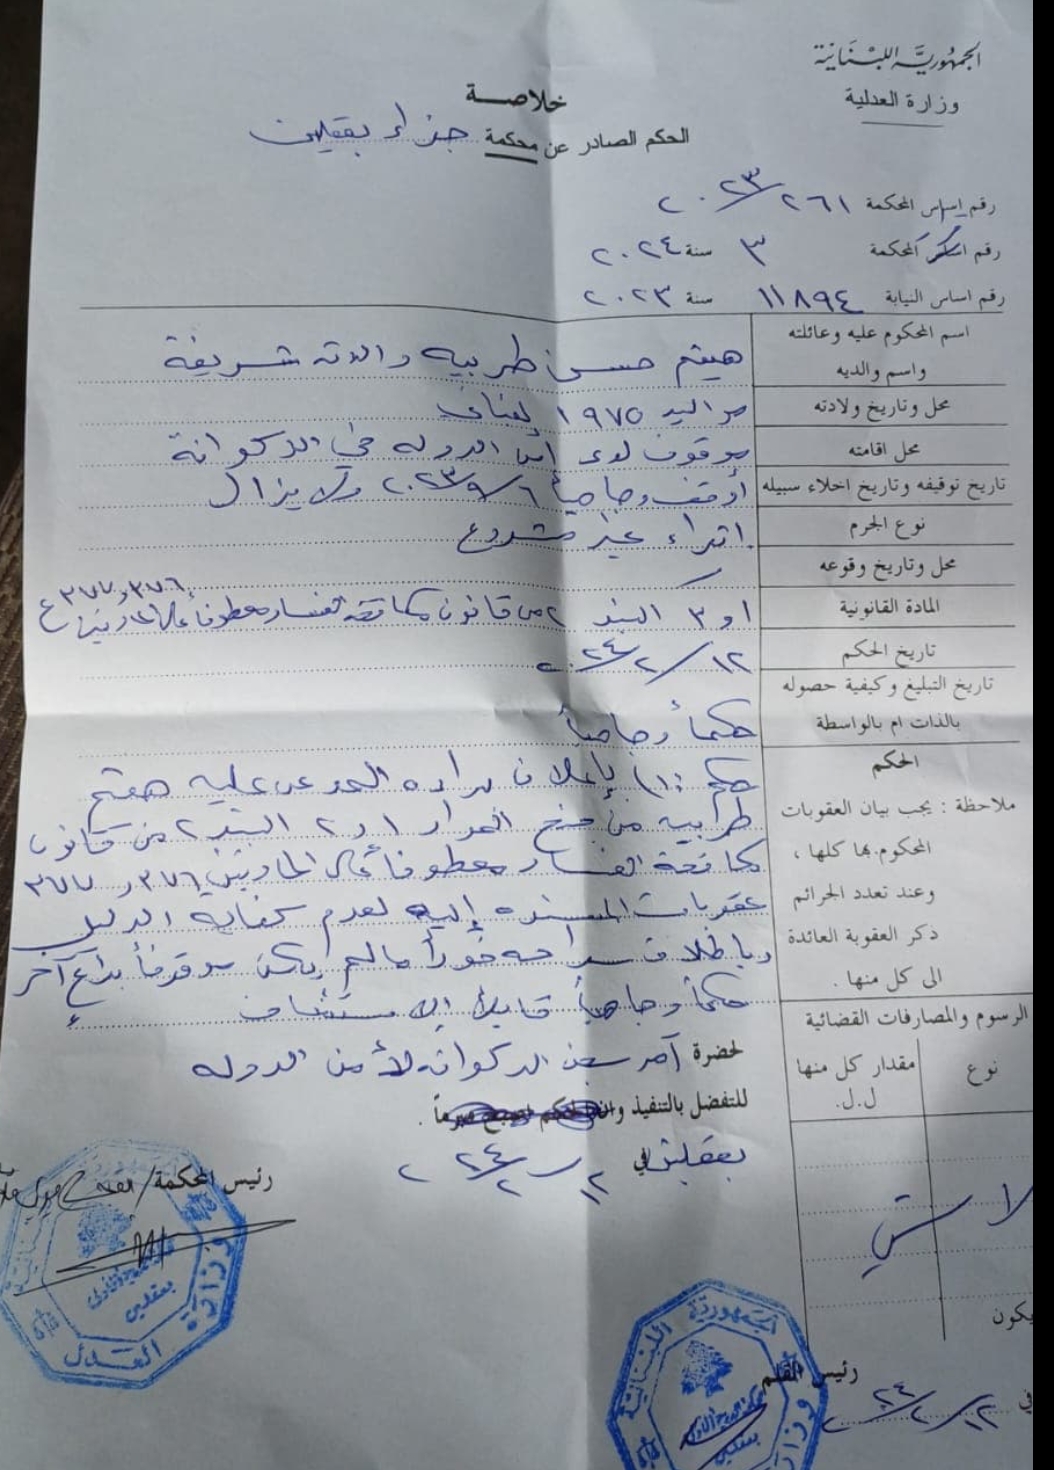 الجمهورية اللبنانية
وزارة العدلية
خلاصة
الحكم الصادر عن محكمة جزاء بعقلين
رقم اساس المحكمة ٢٦١ / ٢٠٢٣
رقم المحكمة ٣ سنة ٢٠٢٤
رقم اساس النيابة ١١٨٩٤ سنة ٢٠٢٣
اسم المحكوم عليه وعائلته
واسم والديه
هيثم حسن طربيه والدته شريفة
محل وتاريخ ولادته
مواليد ١٩٧٥ لبنان
محل اقامته
موقوف لدى أمن الدولة في الدكوانة
تاريخ توقيفه وتاريخ اخلاء سبيله
أوقف وجاهياً ٦/٩/٢٠٢٣ ولا يزال
نوع الجرم
اثراء غير مشروع
محل وتاريخ وقوعه
المادة القانونية
١ و ٣ البند ٢ من قانون مكافحة الفساد معطوفة على المادتين ٣٧٦ و ٣٧٧ ع
تاريخ الحكم
١٢/٢/٢٠٢٤
تاريخ التبليغ وكيفية حصوله
بالذات ام بالواسطة
حكماً وجاهياً
الحكم
ملاحظة : يجب بيان العقوبات
المحكوم بها كلها ،
وعند تعدد الجرائم
ذكر العقوبة العائدة
الى كل منها .
حكم : ١) بإعلان براءة المدعى عليه هيثم
طرابيه من جنح المواد ١ و ٢ البند ٢ من قانون
مكافحة الفساد معطوفة على المادتين ٣٧٦ و ٣٧٧
عقوبات المسندة إليه لعدم كفاية الدليل
وباطلاق سراحه فوراً ما لم يكن موقوفاً بداعٍ آخر
حكماً وجاهياً قابلاً للاستئناف
الرسوم والمصارفات القضائية
نوع
مقدار كل منها
ل.ل.
لا شي
يكون
لحضرة آمر سجن الدكوانة لأمن الدولة
للتفضل بالتنفيذ
بعقلين في ١٢/٢/٢٠٢٤
رئيس المحكمة/
رئيس القلم
في ١٢/٢/٢٠٢٤
وزارة العدل
بعقلين
الجمهورية اللبنانية
وزارة
بعقلين